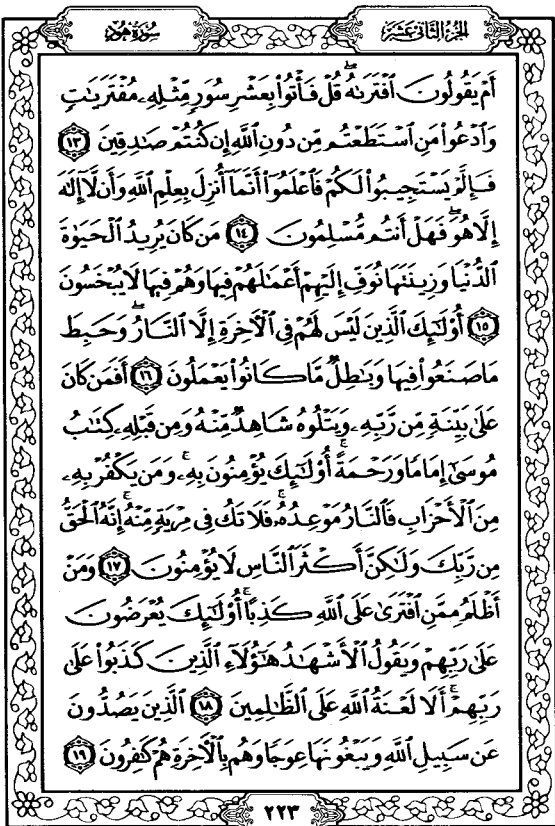 سُورَةُ هُودٍ
الجُزْءُ الثَّانِي عَشَرَ
أَمْ يَقُولُونَ ٱفْتَرَىٰهُ ۖ قُلْ فَأْتُوا۟ بِعَشْرِ سُوَرٍ مِّثْلِهِۦ مُفْتَرَيَٰتٍ
وَٱدْعُوا۟ مَنِ ٱسْتَطَعْتُم مِّن دُونِ ٱللَّهِ إِن كُنتُمْ صَٰدِقِينَ ١٣
فَإِلَّمْ يَسْتَجِيبُوا۟ لَكُمْ فَٱعْلَمُوٓا۟ أَنَّمَآ أُنزِلَ بِعِلْمِ ٱللَّهِ وَأَن لَّآ إِلَٰهَ
إِلَّا هُوَ ۖ فَهَلْ أَنتُم مُّسْلِمُونَ ١٤ مَن كَانَ يُرِيدُ ٱلْحَيَوٰةَ
ٱلدُّنْيَا وَزِينَتَهَا نُوَفِّ إِلَيْهِمْ أَعْمَٰلَهُمْ فِيهَا وَهُمْ فِيهَا لَا يُبْخَسُونَ
١٥ أُو۟لَٰٓئِكَ ٱلَّذِينَ لَيْسَ لَهُمْ فِى ٱلْءَاخِرَةِ إِلَّا ٱلنَّارُ ۖ وَحَبِطَ
مَا صَنَعُوا۟ فِيهَا وَبَٰطِلٌ مَّا كَانُوا۟ يَعْمَلُونَ ١٦ أَفَمَن كَانَ
عَلَىٰ بَيِّنَةٍ مِّن رَّبِّهِۦ وَيَتْلُوهُ شَاهِدٌ مِّنْهُ وَمِن قَبْلِهِۦ كِتَٰبُ
مُوسَىٰٓ إِمَامًا وَرَحْمَةً ۚ أُو۟لَٰٓئِكَ يُؤْمِنُونَ بِهِۦ ۚ وَمَن يَكْفُرْ بِهِۦ
مِنَ ٱلْأَحْزَابِ فَٱلنَّارُ مَوْعِدُهُۥ ۚ فَلَا تَكُ فِى مِرْيَةٍ مِّنْهُ ۚ إِنَّهُ ٱلْحَقُّ
مِن رَّبِّكَ وَلَٰكِنَّ أَكْثَرَ ٱلنَّاسِ لَا يُؤْمِنُونَ ١٧ وَمَنْ
أَظْلَمُ مِمَّنِ ٱفْتَرَىٰ عَلَى ٱللَّهِ كَذِبًا ۚ أُو۟لَٰٓئِكَ يُعْرَضُونَ
عَلَىٰ رَبِّهِمْ وَيَقُولُ ٱلْأَشْهَٰدُ هَٰٓؤُلَآءِ ٱلَّذِينَ كَذَبُوا۟ عَلَىٰ
رَبِّهِمْ ۚ أَلَا لَعْنَةُ ٱللَّهِ عَلَى ٱلظَّٰلِمِينَ ١٨ ٱلَّذِينَ يَصُدُّونَ
عَن سَبِيلِ ٱللَّهِ وَيَبْغُونَهَا عِوَجًا وَهُم بِٱلْءَاخِرَةِ هُمْ كَٰفِرُونَ ١٩
٢٢٣